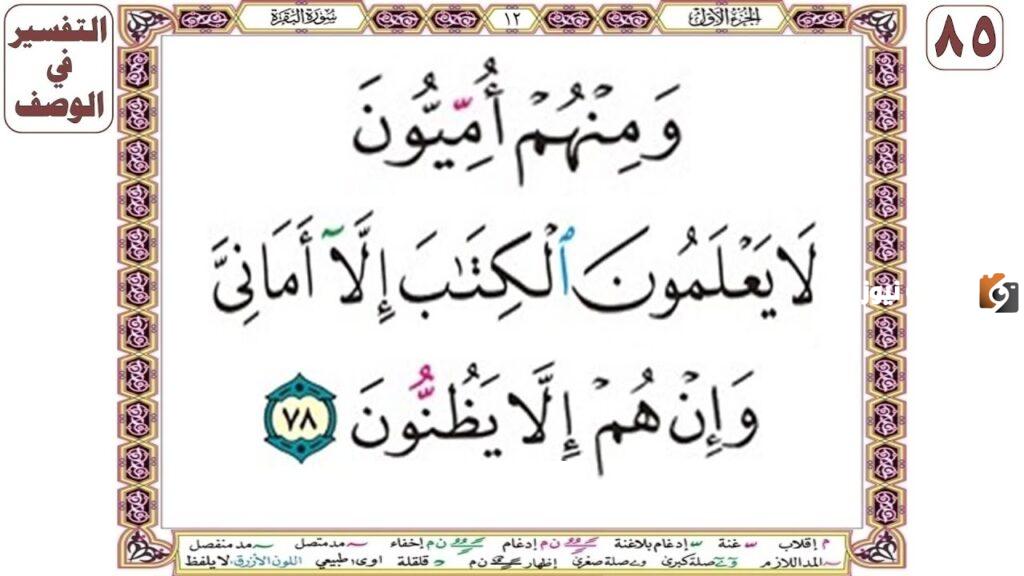 التفسير
في
الوصف
سورة البقرة
١٢
الجزء الأول
٨٥
وَمِنْهُمْ أُمِّيُّونَ
لَا يَعْلَمُونَ ٱلْكِتَٰبَ إِلَّآ أَمَانِىَّ
وَإِنْ هُمْ إِلَّا يَظُنُّونَ ٧٨
نيوز
م إقلاب غنة إدغام بلاغنة ن م إدغام ن م إخفاء مد متصل مد منفصل
المد اللازم صلة كبرى صلة صغرى إظهار ن م قلقلة اوى طبيعي اللون الأزرق لا يلفظ